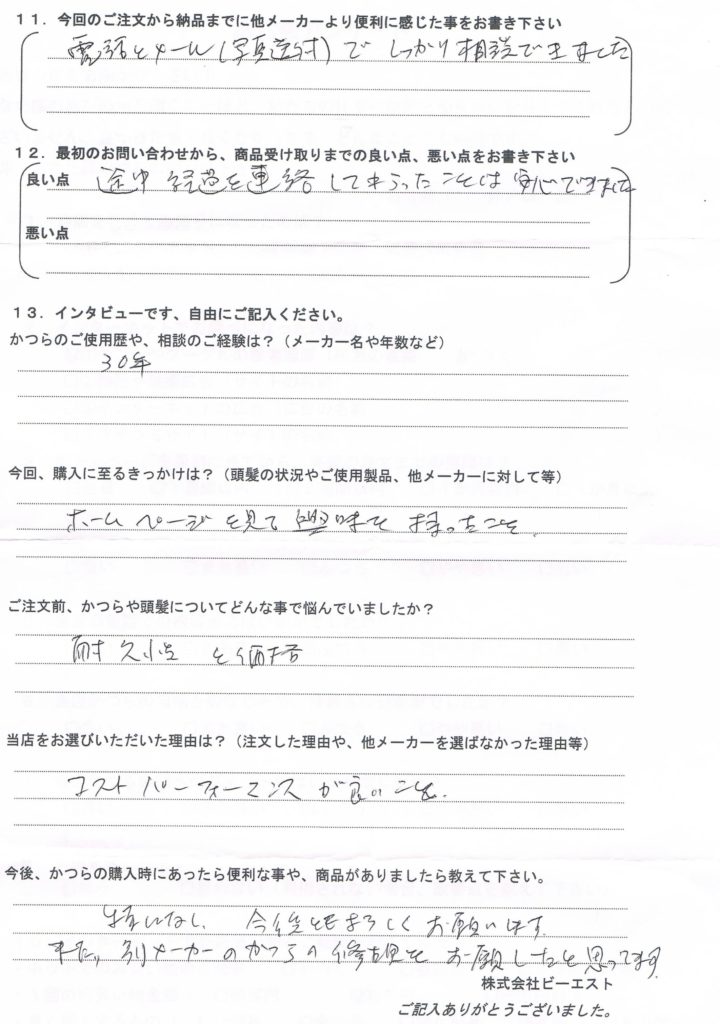 １１．今回のご注文から納品までに他メーカーより便利に感じた事をお書き下さい
電話とメール(写真送付)でしっかり相談できました
１２．最初のお問い合わせから、商品受け取りまでの良い点、悪い点をお書き下さい
良い点 途中経過を連絡してもらったことは安心できました
悪い点
１３．インタビューです、自由にご記入ください。
かつらのご使用歴や、相談のご経験は？（メーカー名や年数など）
30年
今回、購入に至るきっかけは？（頭髪の状況やご使用製品、他メーカーに対して等）
ホームページを見て興味を持ったこと.
ご注文前、かつらや頭髪についてどんな事で悩んでいましたか？
耐久性と価格
当店をお選びいただいた理由は？（注文した理由や、他メーカーを選ばなかった理由等）
コストパーフォーマンスが良いこと.
今後、かつらの購入時にあったら便利な事や、商品がありましたら教えて下さい。
特になし、今後ともよろしくお願いします
また、別メーカーのかつらの修理をお願したと思ってます.
株式会社ビーエスト
ご記入ありがとうございました。